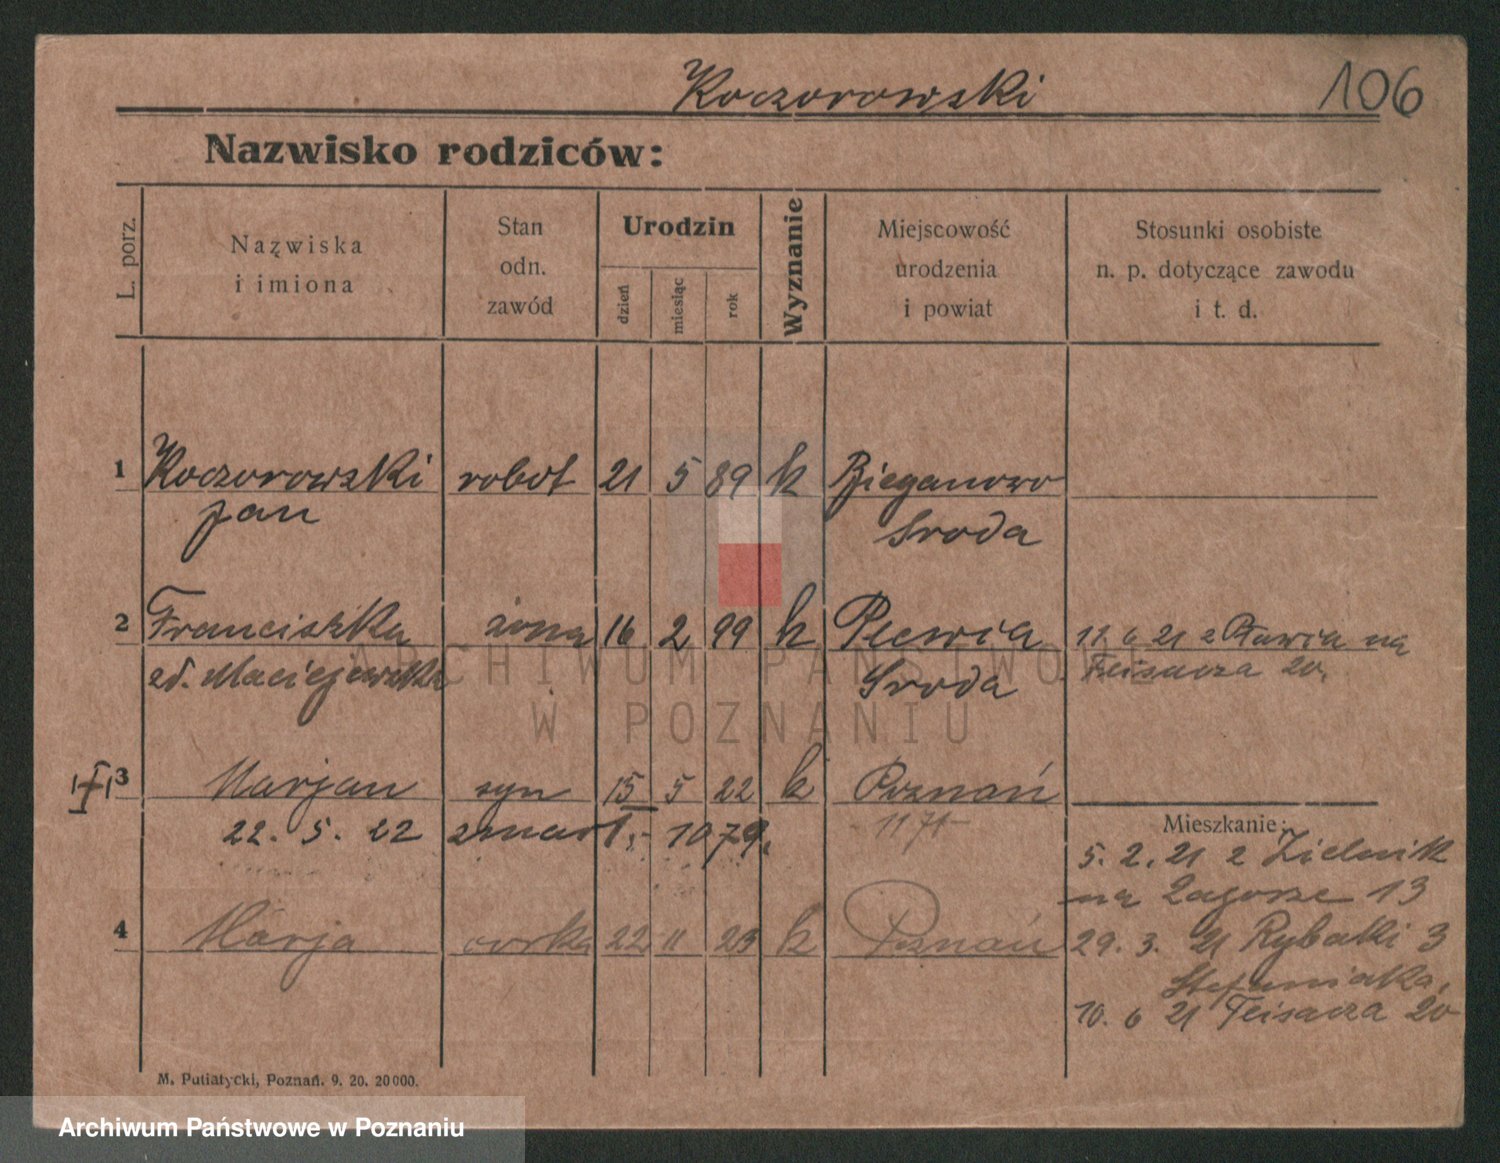 Koczorowski 106
Nazwisko rodziców:
L. porz.
Nazwiska
i imiona
Stan
odn.
zawód
Urodzin
dzień
miesiąc
rok
Wyznanie
Miejscowość
urodzenia
i powiat
Stosunki osobiste
n. p. dotyczące zawodu
i t. d.
1 Koczorowski robot 21 5 89 k Bieganowo
Jan Sroda
2 Franciszka żona 16 2 99 k Plewia 11. 6 21 z Pławia na
zd. Maciejewska Sroda Feisacza 20.
3 Marjan syn 15 5 22 k Poznań
22. 5. 22 zmarł. 1079. 1171
Mieszkanie:
5. 2. 21 z Zielnik
na Zagorze 13
4 Marja corka 22 11 23 k Poznań 29. 3. 21 Rybaki 3
Stefaniaka.
10. 6 21 Feisacza 20
M. Putiatycki, Poznań. 9. 20. 20000.
ARCHIWUM PAŃSTWOWE
W POZNANIU
Archiwum Państwowe w Poznaniu